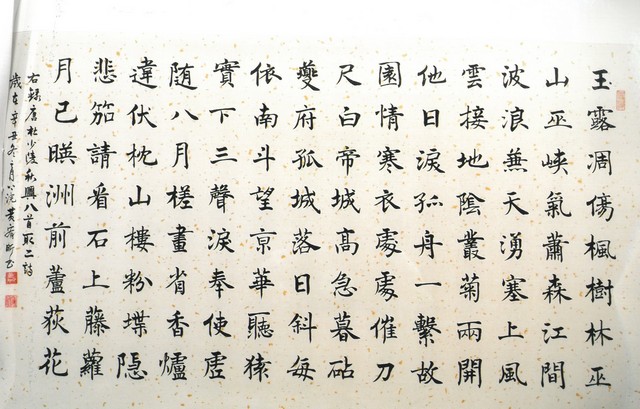 玉露凋傷楓樹林巫
山巫峽氣蕭森江間
波浪兼天湧塞上風
雲接地陰叢菊兩開
他日淚孤舟一繫故
園情寒衣處處催刀
尺白帝城高急暮砧
夔府孤城落日斜每
依南斗望京華聽猿
實下三聲淚奉使虛
随八月槎畫省香爐
違伏枕山樓粉堞隱
悲笳請看石上藤蘿
月已暎洲前蘆荻花
右録唐杜少陵秋興八首取二詩
歲在辛丑冬月